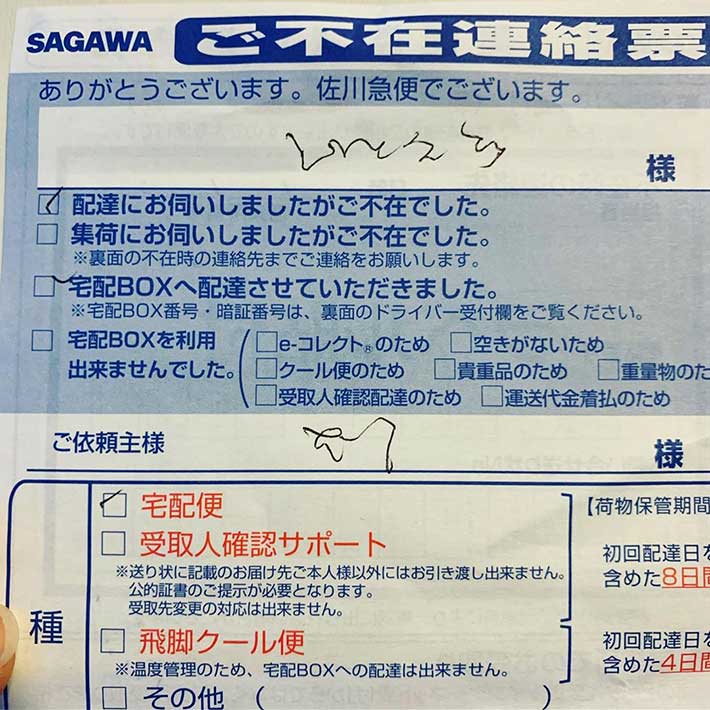 SAGAWA ご不在連絡票
ありがとうございます。佐川急便でございます。
様
配達にお伺いしましたがご不在でした。
集荷にお伺いしましたがご不在でした。
※裏面の不在時の連絡先までご連絡をお願いします。
宅配BOXへ配達させていただきました。
※宅配BOX番号・暗証番号は、裏面のドライバー受付欄をご覧ください。
宅配BOXを利用 e-コレクト®のため 空きがないため
出来ませんでした。 クール便のため 貴重品のため 重量物のた
受取人確認配達のため 運送代金着払のため
ご依頼主様 様
宅配便 【荷物保管期間
受取人確認サポート 初回配達日を
※送り状に記載のお届け先ご本人様以外にはお引き渡し出来ません。 含めた8日間
公的証書のご提示が必要となります。
受取先変更の対応は出来ません。
種
飛脚クール便 初回配達日を
※温度管理のため、宅配BOXへの配達は出来ません。 含めた4日間
その他( )